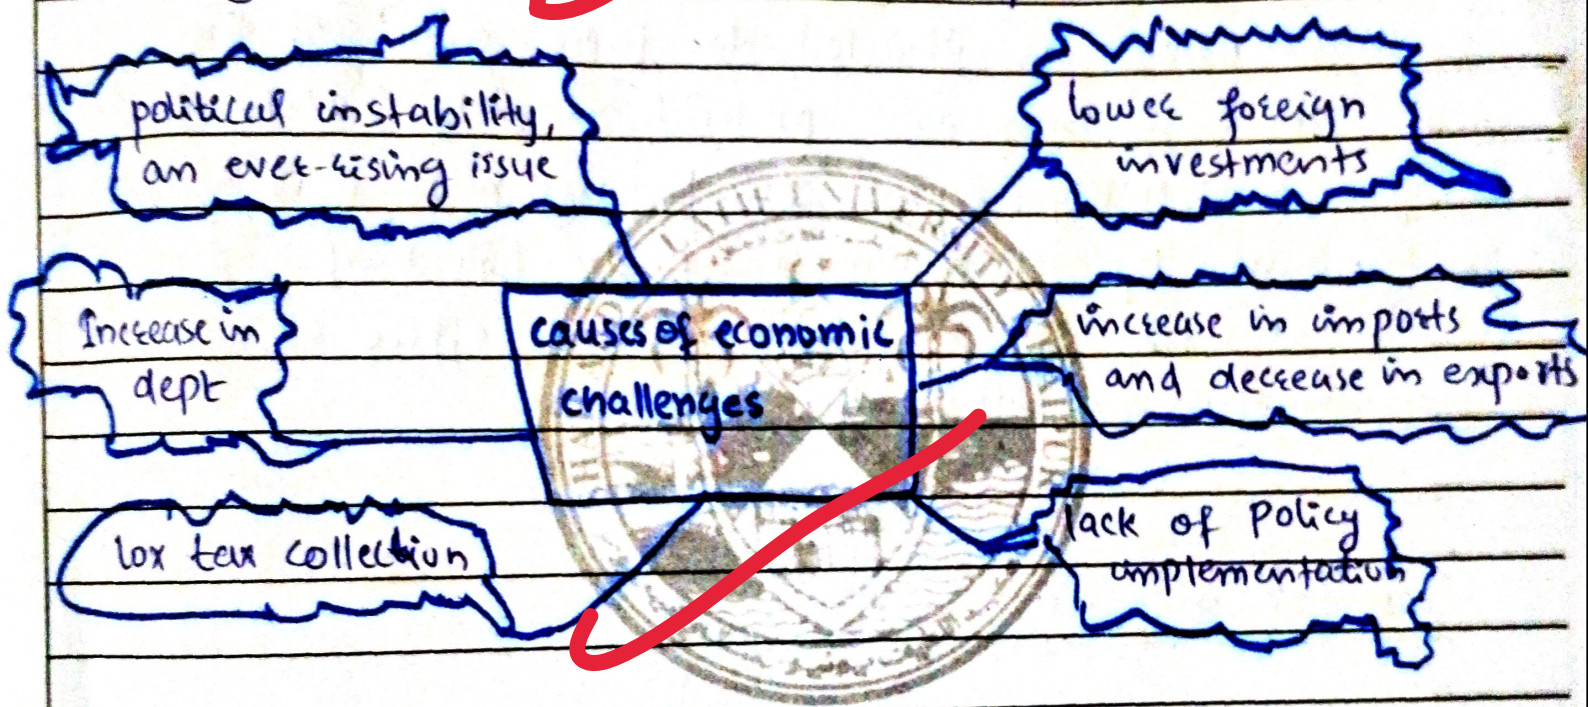 political instability,
an ever-rising issue
lower foreign
investments
Increase in
dept
causes of economic
challenges
increase in imports
and decrease in exports
lox tax collection
lack of policy
implementation